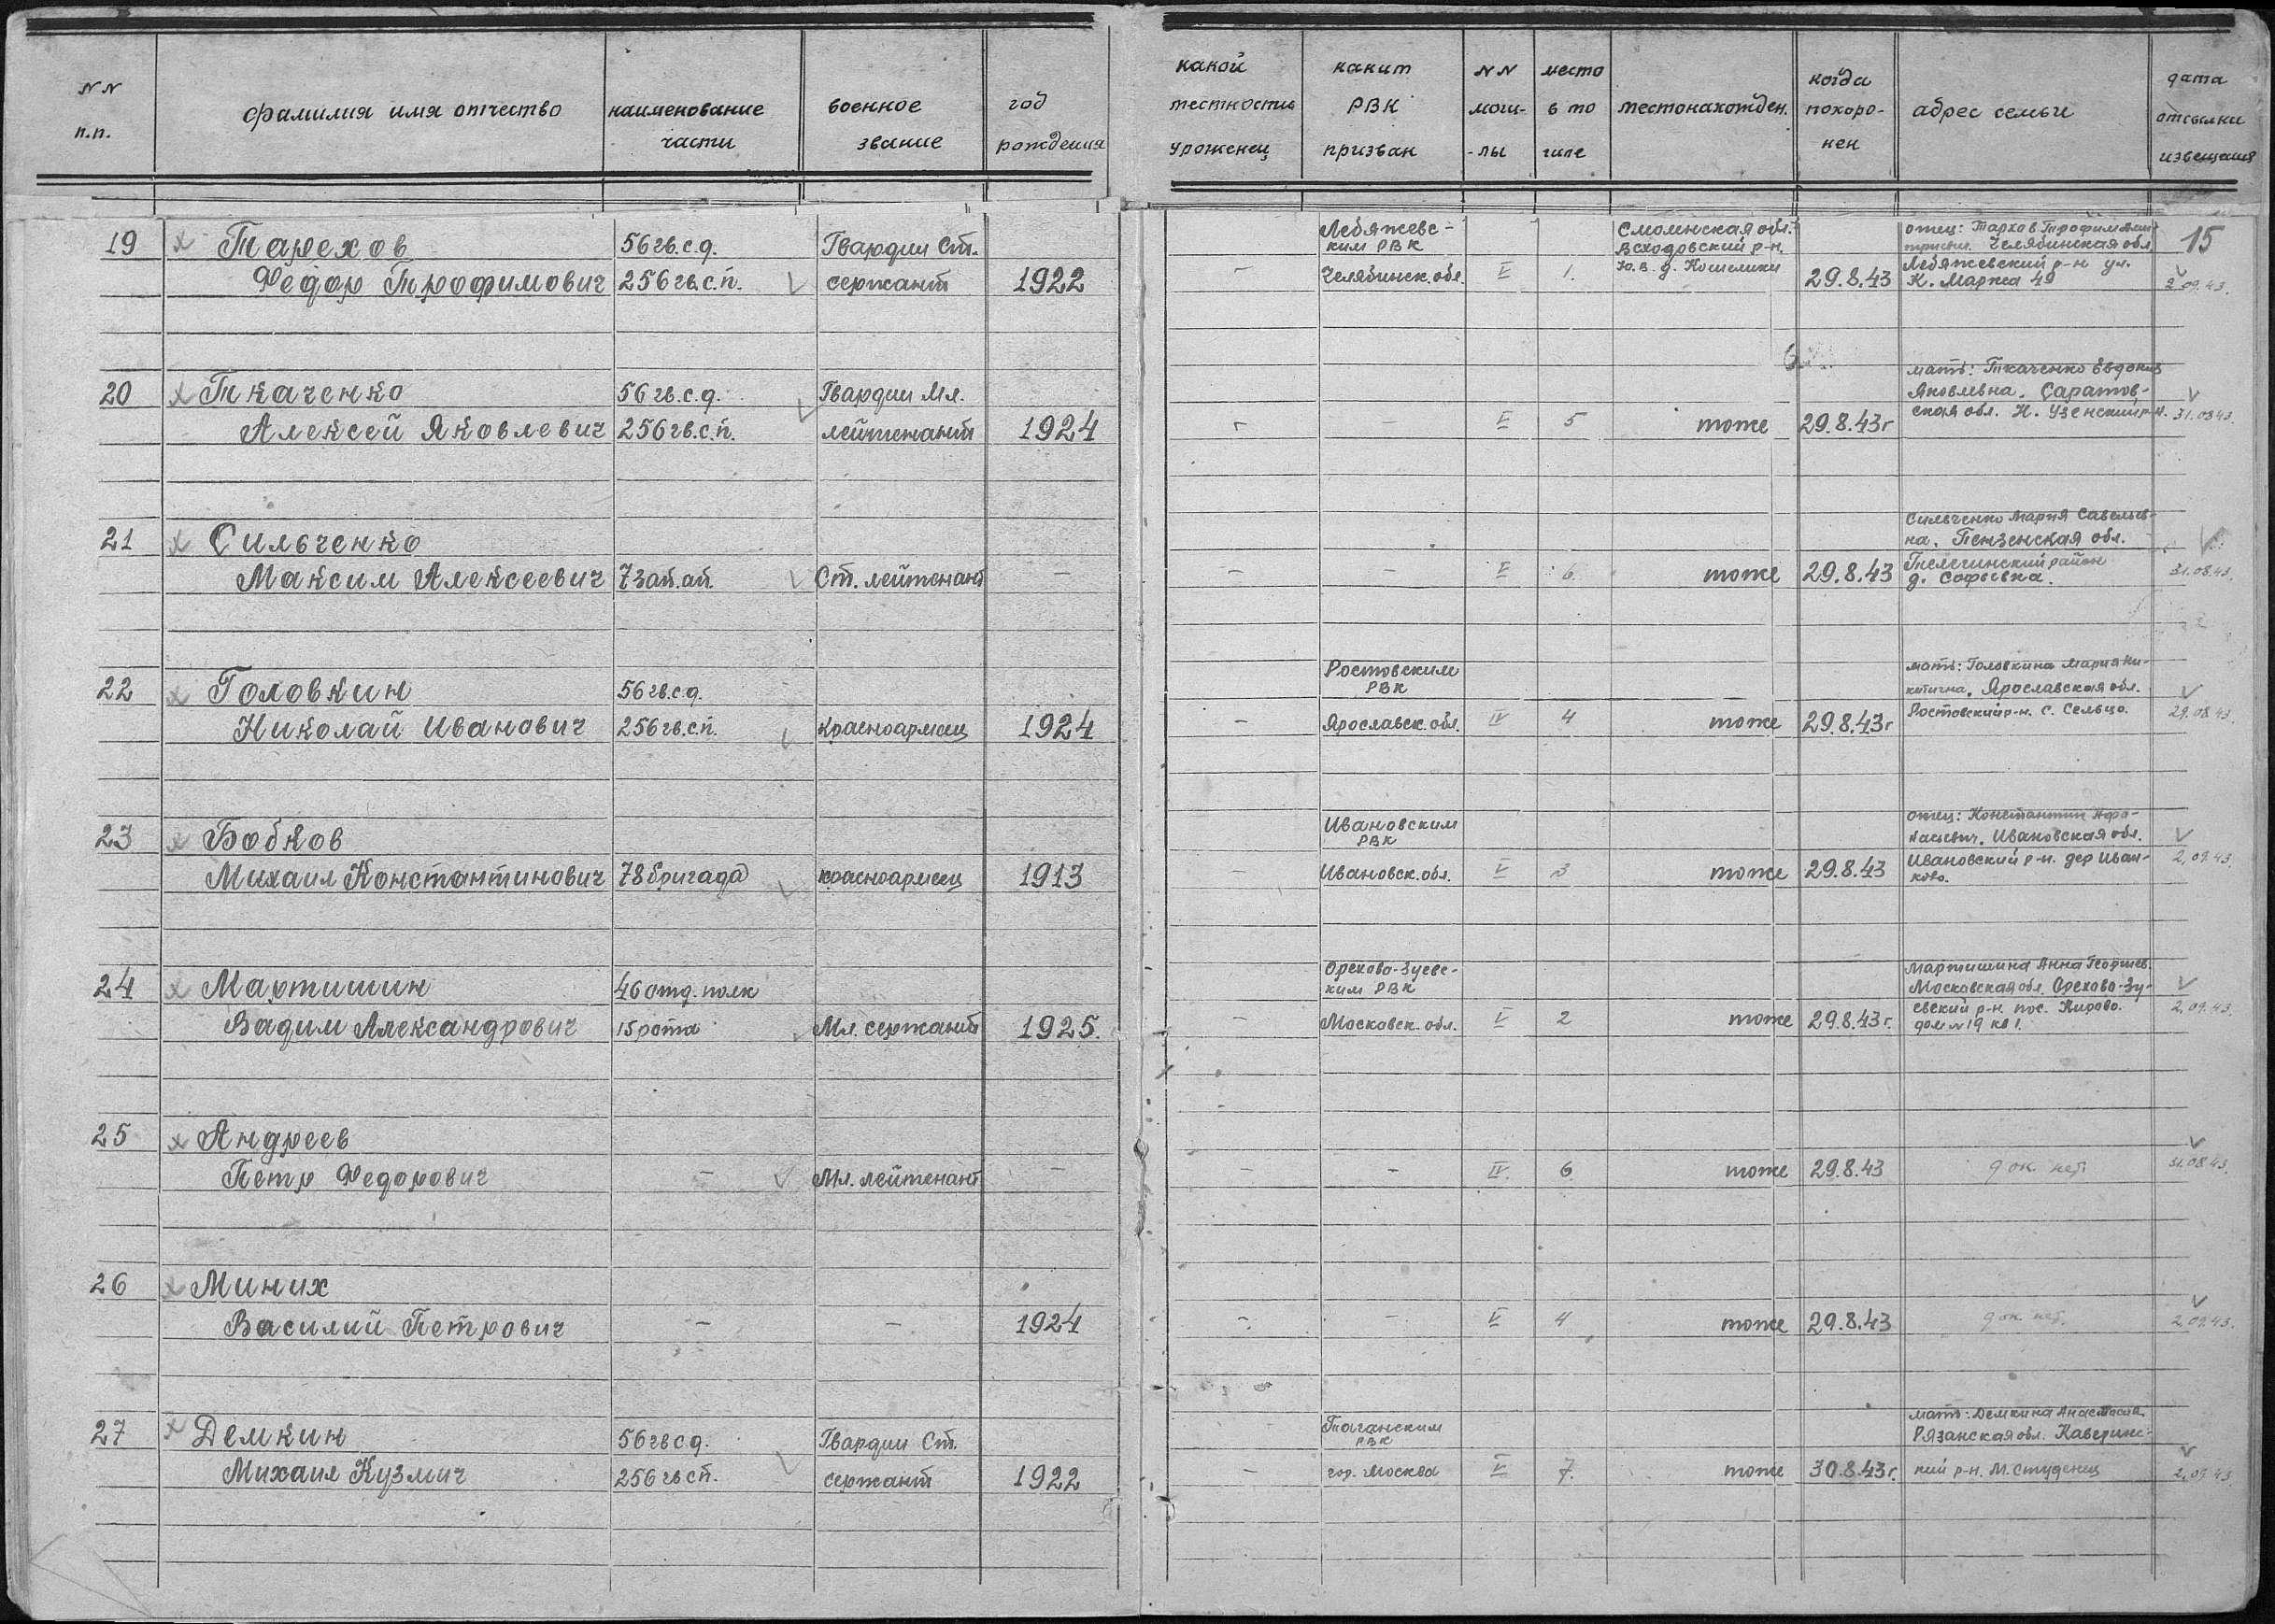 NN п.п.
фамилия имя отчество
наименование части
военное звание
год рождения
какой местности уроженец
каким РВК призван
NN моги-лы
место в могиле
местонахожден.
когда похоро-нен
адрес семьи
дата отсылки извещания
15
19 Тарехов 56 гв.с.д. Гвардии Ст.
Федор Трофимович 256 гв.с.п. сержант 1922
– Лебяжевс-
ким РВК
Челябинск. обл. V 1.
Смоленская обл.
Всходовский р-н.
Ю.в. д. Кошелики
29.8.43
отец: Тархов Трофим
Челябинская обл
Лебяжевский р-н ул.
К. Маркса 49
2.09.43.
20 Ткаченко 56 гв.с.д. Гвардии Мл.
Алексей Яковлевич 256 гв.с.п. лейтенант 1924
– – V 5 тоже 29.8.43г
мать: Ткаченко Евдокия
Яковлевна. Саратов-
ская обл. Н. Узенский р-н.
31.08.43.
21 Сильченко
Максим Алексеевич 7 зап. ап. Ст. лейтенант –
– – V 6 тоже 29.8.43
Сильченко Мария Савельев-
на. Пензенская обл.
Телегинский район
д. Софьевка.
31.08.43.
22 Головкин 56 гв.с.д.
Николай Иванович 256 гв.с.п. красноармеец 1924
– Ростовским
РВК
Ярославск. обл. IV 4 тоже 29.8.43г
мать: Головкина Мария Ни-
китична. Ярославская обл.
Ростовский р-н. с. Сельцо.
29.08.43.
23 Бобков
Михаил Константинович 78 бригада красноармеец 1913
– Ивановским
РВК
Ивановск. обл. V 3 тоже 29.8.43
отец: Константин Афа-
насьевич. Ивановская обл.
Ивановский р-н. дер Иван-
ково.
2.09.43.
24 Мартишин 46 отд. полк
Вадим Александрович 15 рота Мл. сержант 1925.
– Орехово-Зуевс-
ким РВК
Московск. обл. V 2 тоже 29.8.43г.
Мартишина Анна Георгиев.
Московская обл. Орехово-Зу-
евский р-н. пос. Кирово.
дом №19 кв 1.
2.09.43.
25 Андреев
Петр Федорович – Мл. лейтенант –
– – IV 6 тоже 29.8.43 док. нет.
31.08.43.
26 Миних
Василий Петрович – – 1924
– – V 4 тоже 29.8.43 док. нет.
2.09.43.
27 Демкин 56 гв сд. Гвардии Ст.
Михаил Кузмич 256 гв сп. сержант 1922
– Таганским
РВК
гор. Москва V 7. тоже 30.8.43г.
мать: Демкина Анастасия
Рязанская обл. Каверинс-
кий р-н. М. Студенец
2.09.43